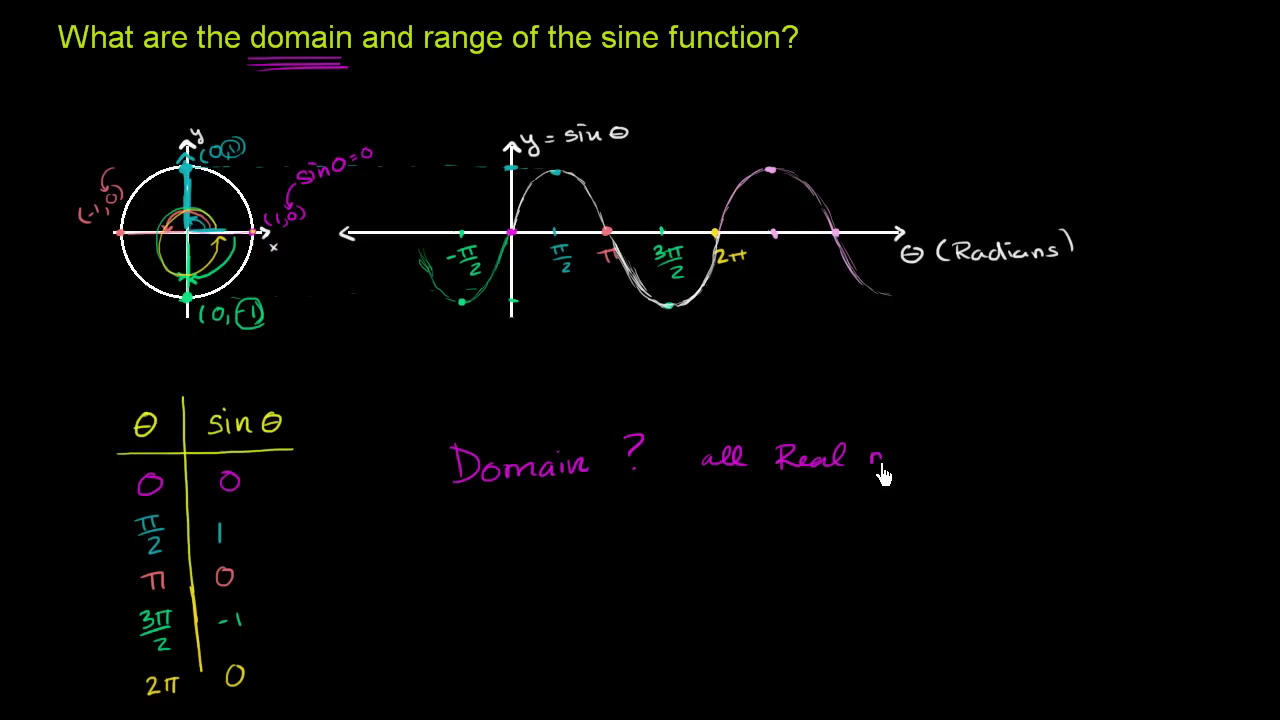 What are the domain and range of the sine function?
y
(0,1)
sin0=0
(-1,0)
(1,0)
x
(0,-1)
y = sin θ
-π/2
π/2
π
3π/2
2π
θ (Radians)
θ sin θ
0 0
π/2 1
π 0
3π/2 -1
2π 0
Domain ? all Real n